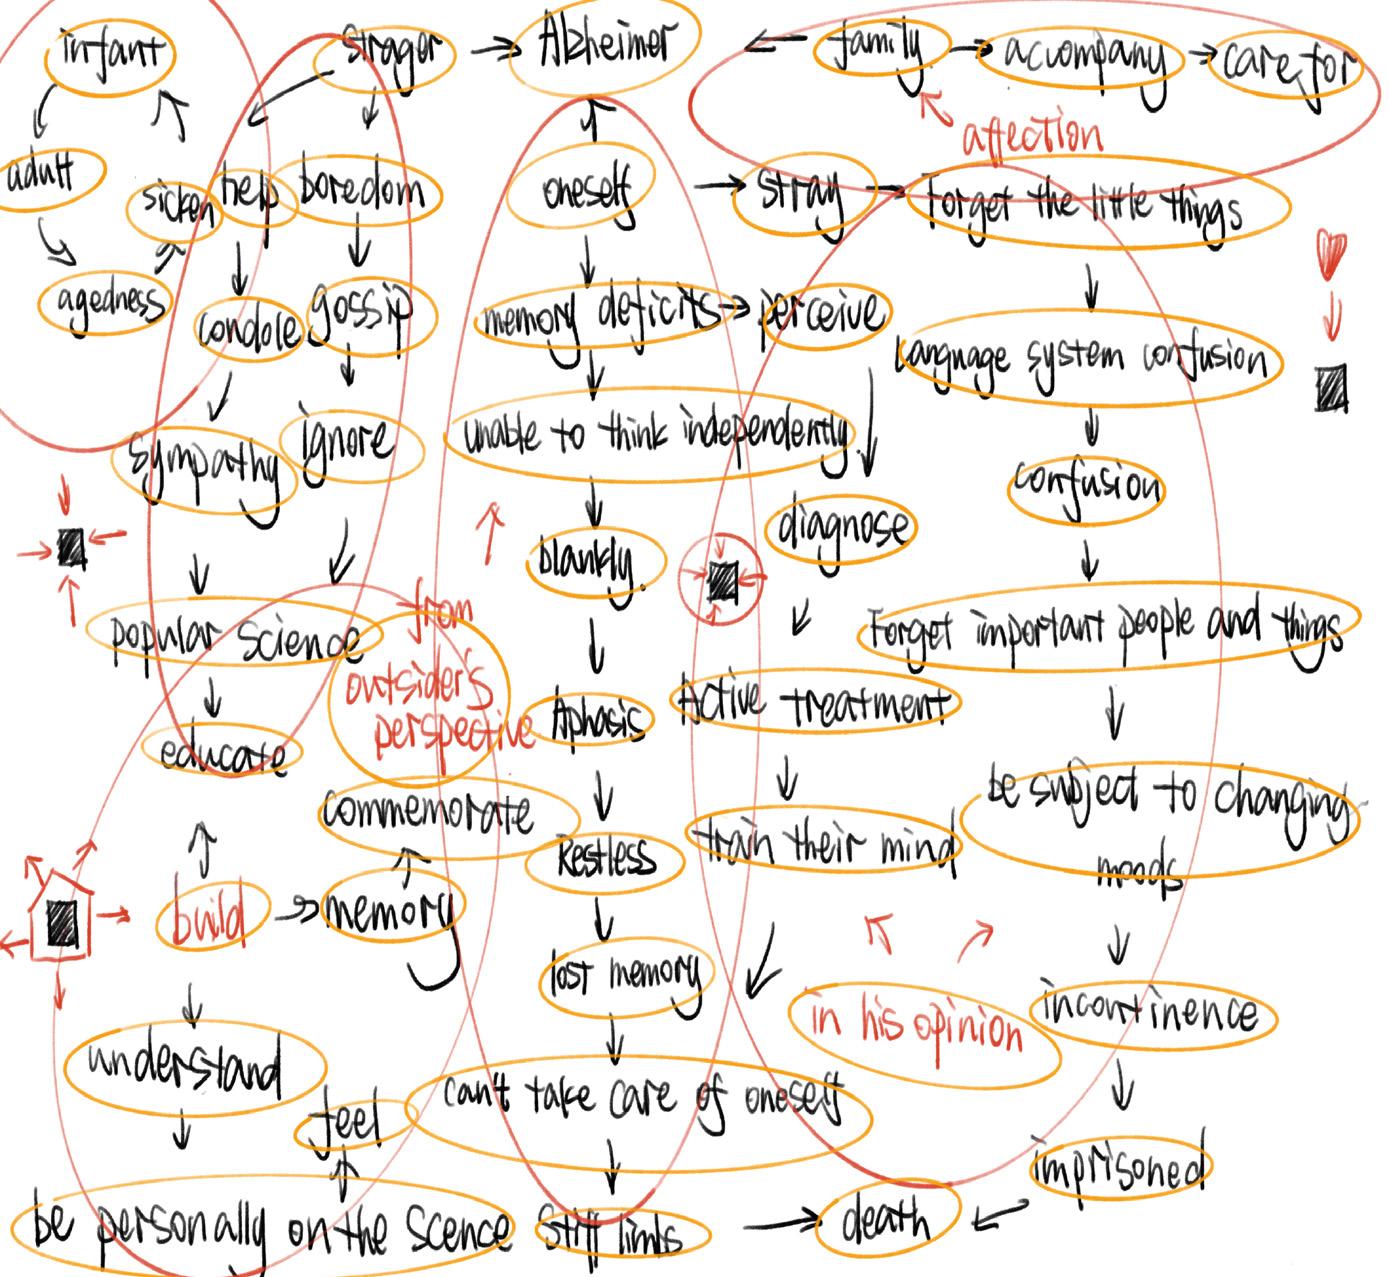 infant
strager
Alzheimer
family
accompany
care for
affection
adult
sicken
help
boredom
oneself
stray
Forget the little things
agedness
condole
gossip
memory deficits
perceive
Language system confusion
sympathy
ignore
unable to think independently
confusion
diagnose
blankly
popular science
from
outsider's
perspective
Forget important people and things
Aphasis
Active treatment
educate
commemorate
Restless
train their mind
be subject to changing
moods
build
memory
lost memory
in his opinion
incontinence
understand
feel
can't take care of oneself
imprisoned
be personally on the scence
Stiff limbs
death